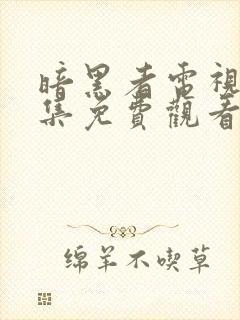 暗黑者電視
集免費觀看
绵羊不喫草